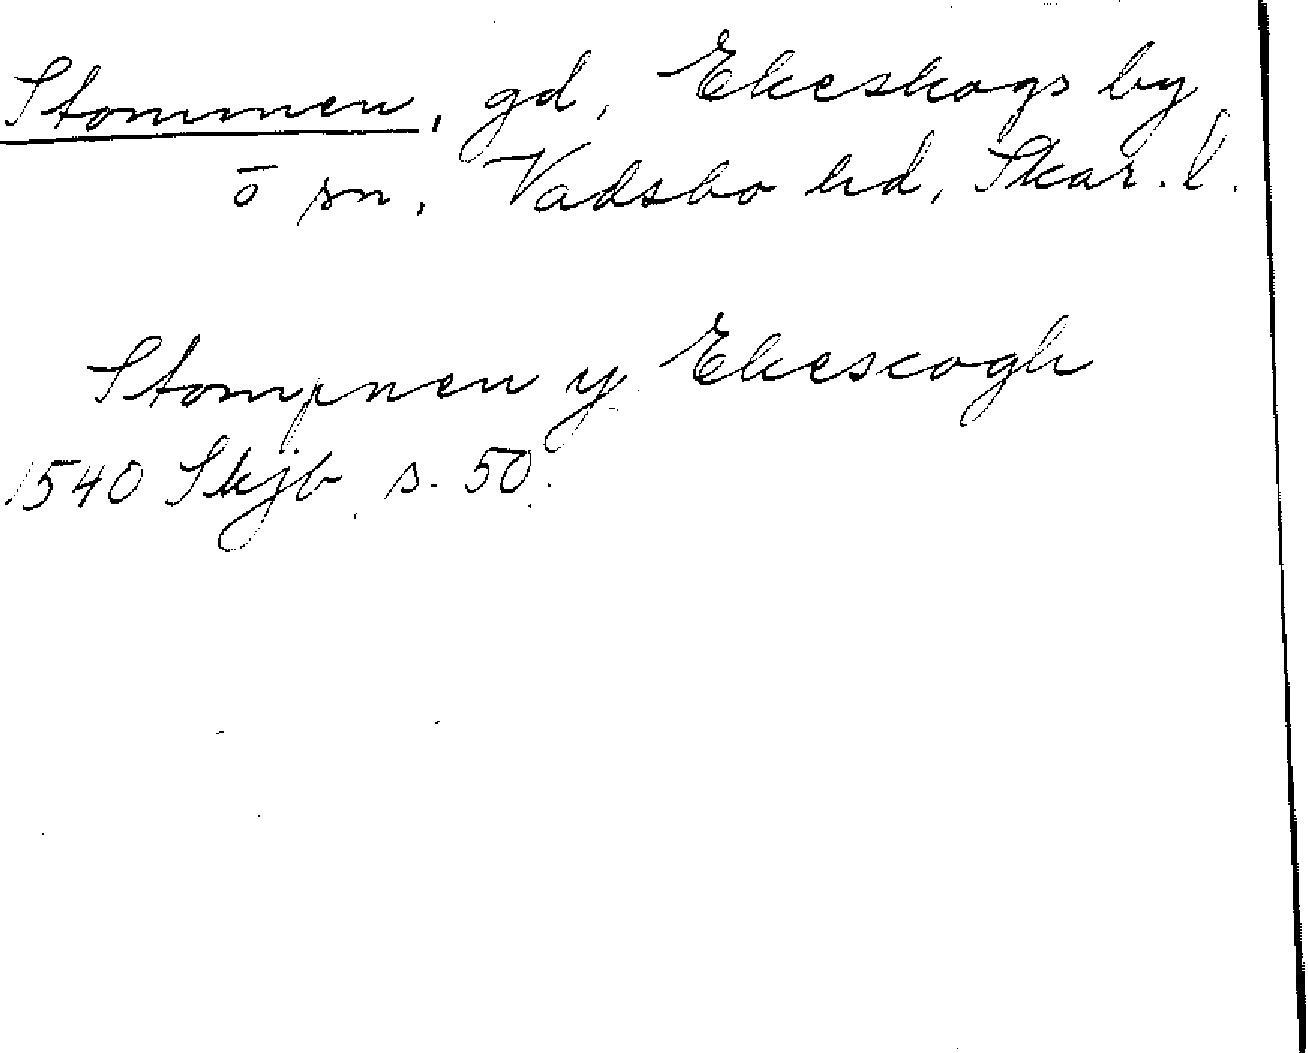 Stommen, gd, Ekeskogs by
o sn, Vadsbo hd, Skar. l.
Stompnen y Ekescogh
1540 Skjb s. 50.